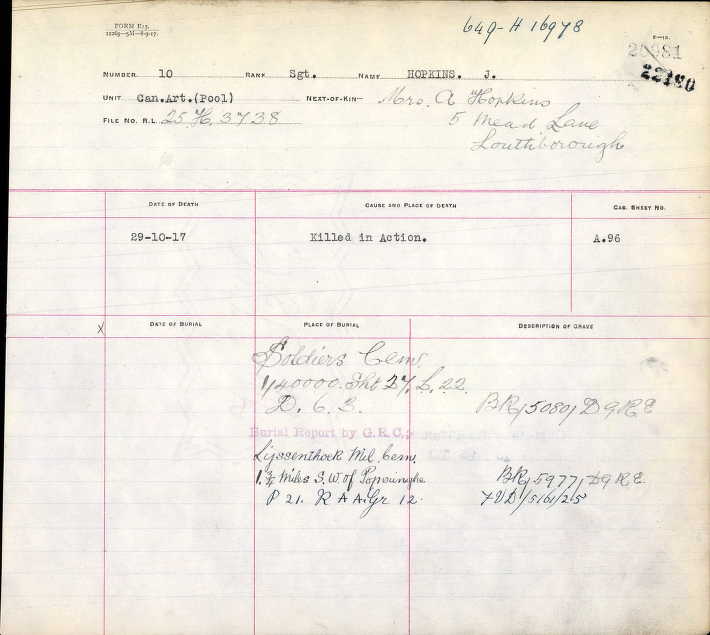 FORM E13.
649-H 16978
E-12.
22180
NUMBER 10 RANK Sgt. NAME HOPKINS. J.
UNIT Can.Art.(Pool) NEXT-OF-KIN Mrs. A Hopkins
FILE NO. R.L. 25 H. 3738 5 Mead Lane
Southborough
DATE OF DEATH CAUSE AND PLACE OF DEATH CAS. SHEET NO.
29-10-17 Killed in Action. A.96
X DATE OF BURIAL PLACE OF BURIAL DESCRIPTION OF GRAVE
Soldiers Cem.
1/40000. Sht 27. L. 22.
D. 6. 3. BR/5080/D9RE
Burial Report by G.R.C.
Lijssenthoek Mil Cem.
1 3/4 Miles S.W. of Popouninghe BR/5977/D9RE.
P 21. R A A. Gr 12. FVD/5/6/25